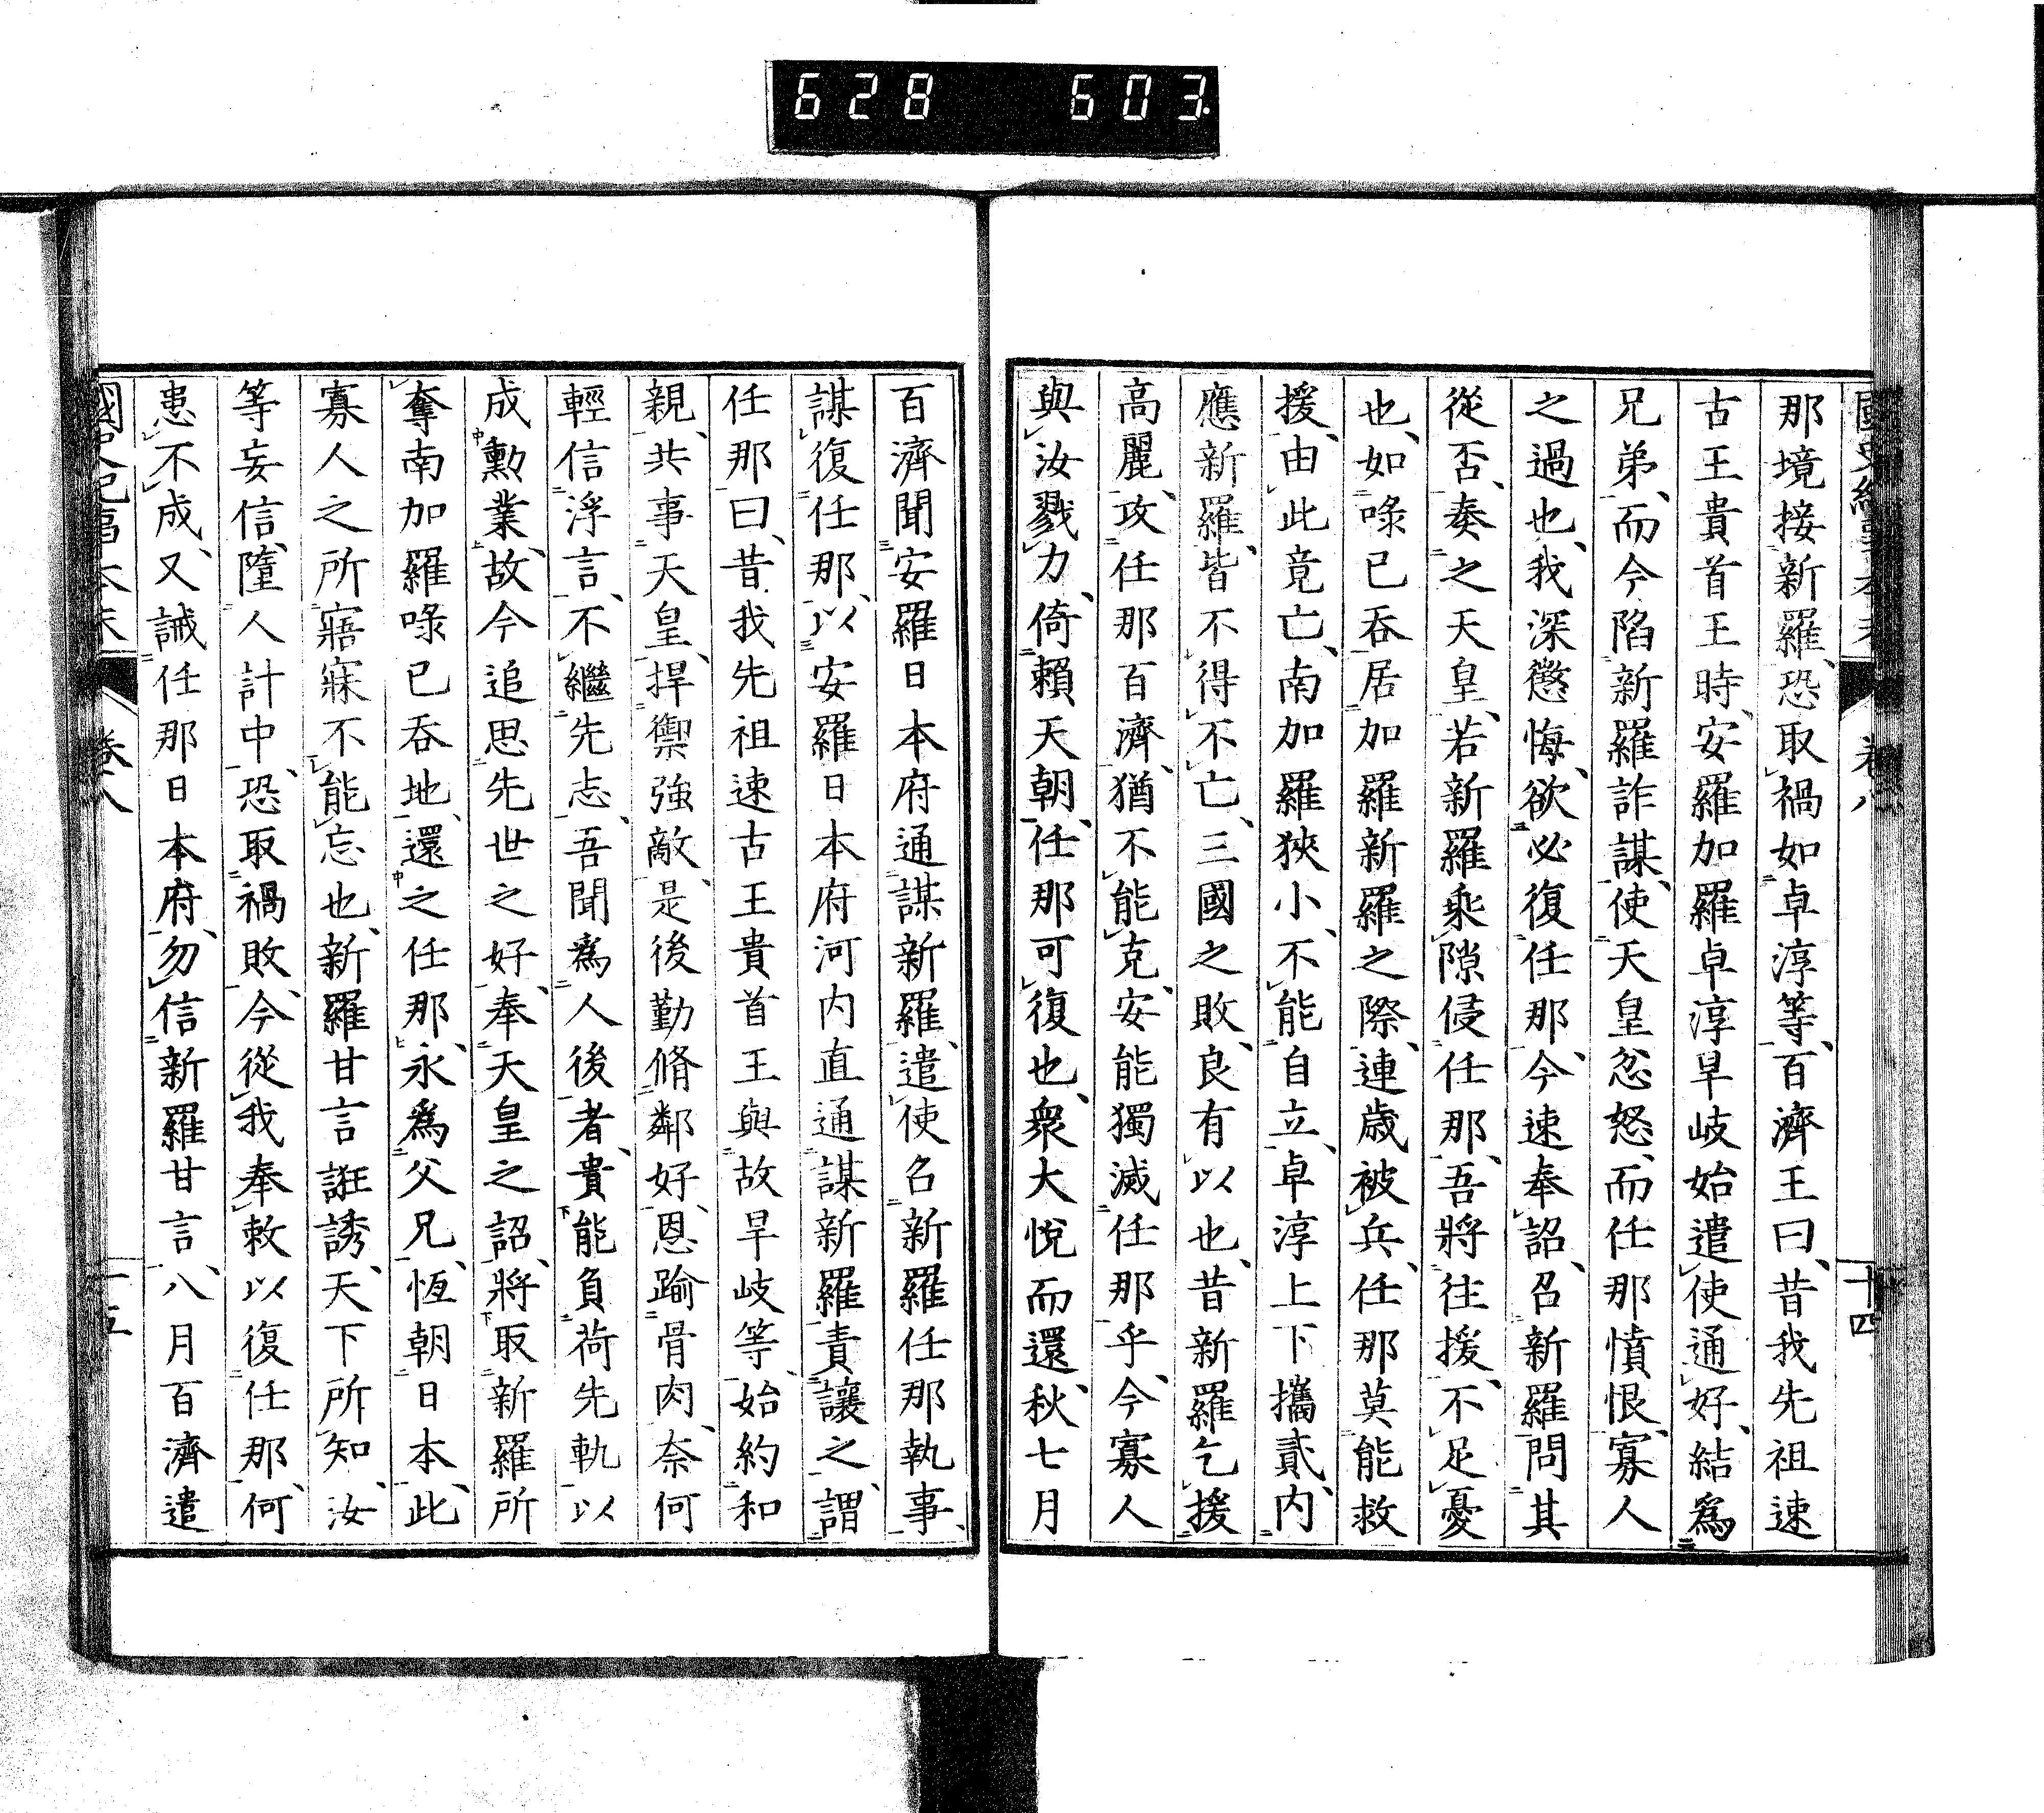 628 603.
那境接新羅、恐取禍如卓淳等、百濟王曰、昔我先祖速
古王貴首王時、安羅加羅卓淳旱岐始遣使通好、結爲
兄弟、而今陷新羅詐謀、使天皇忿怒、而任那憤恨、寡人
之過也、我深懲悔、欲必復任那、今速奉詔、召新羅問其
從否、奏之天皇、若新羅乘隙侵任那、吾將往援、不足憂
也、如㖨已吞、居加羅新羅之際、連歲被兵、任那莫能救
援、由此竟亡、南加羅狹小、不能自立、卓淳上下攜貳、內
應新羅、皆不得不亡、三國之敗、良有以也、昔新羅乞援
高麗、攻任那百濟、猶不能克、安能獨滅任那乎、今寡人
與汝戮力、倚賴天朝、任那可復也、衆大悅而還、秋、七月
十四
百濟聞安羅日本府通謀新羅、遣使召新羅任那執事、
謀復任那、以安羅日本府河内直通謀新羅責讓之、謂
任那曰、昔我先祖速古王貴首王與故旱岐等、始約和
親、共事天皇、捍禦強敵、是後勤脩鄰好、恩踰骨肉、奈何
輕信浮言、不繼先志、吾聞爲人後者、貴能負荷先軌以
成勳業、故今追思先世之好、奉天皇之詔、將取新羅所
奪南加羅㖨已吞地、還之任那、永爲父兄、恆朝日本、此
寡人之所寤寐不能忘也、新羅甘言誑誘、天下所知、汝
等妄信、墮人計中、恐取禍敗、今從我奉敕以復任那、何
患不成、又誡任那日本府、勿信新羅甘言、八月百濟遣
國史紀事本末 卷八